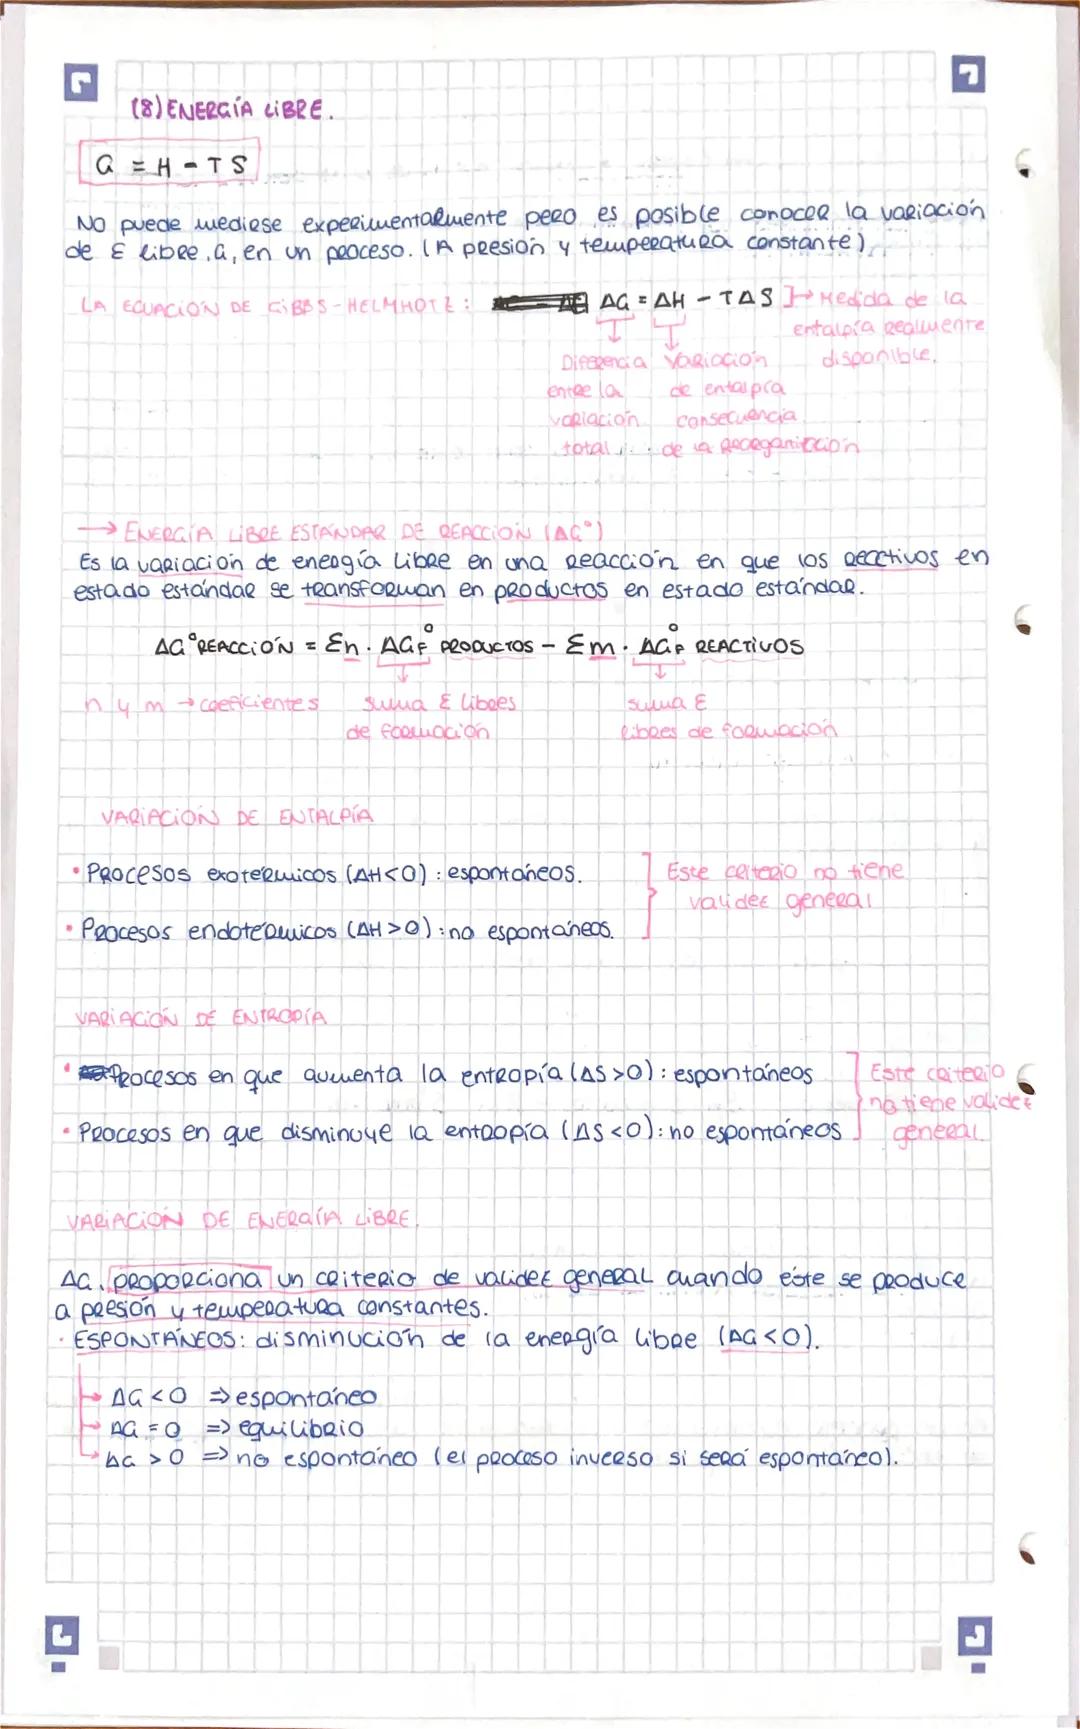 (8) ENERGÍA LIBRE.
G = H - TS
No puede medirse experimentalmente pero es posible conocer la variación
de E libre, G, en un proceso. (A presión y temperatura constante)
LA ECUACIÓN DE GIBBS-HELMHOTZ: ΔG = ΔH - TΔS ]→ Medida de la
entalpía realmente
disponible.
Diferencia
entre la
variación
total
variación
de entalpía
consecuencia
de la reorganización
→ ENERGÍA LIBRE ESTÁNDAR DE REACCIÓN (ΔG°)
Es la variación de energía libre en una reacción en que los reactivos en
estado estándar se transforman en productos en estado estándar.
ΔG° REACCIÓN = Σn · ΔGf° PRODUCTOS - Σm · ΔGf° REACTIVOS
n y m → coeficientes
suma E libres
de formación
suma E
libres de formación
VARIACIÓN DE ENTALPÍA
• Procesos exotérmicos (ΔH<0) : espontáneos.
• Procesos endotérmicos (ΔH>0) : no espontáneos.
Este criterio no tiene
validez general
VARIACIÓN DE ENTROPÍA
• Procesos en que aumenta la entropía (ΔS>0) : espontáneos
• Procesos en que disminuye la entropía (ΔS<0) : no espontáneos
Este criterio
no tiene validez
general.
VARIACIÓN DE ENERGÍA LIBRE.
ΔG, proporciona un criterio de validez general cuando éste se produce
a presión y temperatura constantes.
· ESPONTÁNEOS: disminución de la energía libre (ΔG<0).
→ ΔG < 0 ⇒ espontáneo
→ ΔG = 0 ⇒ equilibrio
→ ΔG > 0 ⇒ no espontáneo (el proceso inverso si será espontáneo).